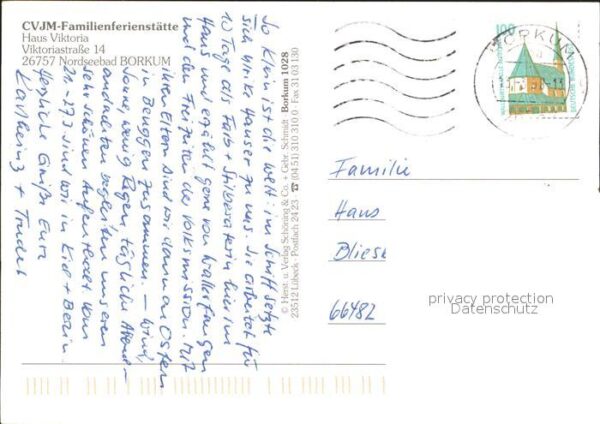 CVJM-Familienferienstätte
Haus Viktoria
Viktoriastraße 14
26757 Nordseebad BORKUM
So klein ist die Welt: im Schiff setzte
sich Ulrike Hauser zu uns. Sie arbeitet für
10 Tage als Farb + Stilberaterin hier im
Haus und erzählt gern von Wallerfangen
und den Freizeiten der Volksmission. Mit
ihren Eltern sind wir dann an Ostern
in Beuggen zusammen. – Wind,
Sonne, wenig Regen, tägliche Abend-
andachten begleiten unseren
sehr schönen Aufenthalt. Vom
21. - 27. sind wir in Kiel +
Herzliche Grüße Eure
Karlheinz + Trudel
© Herst. u. Verlag Schöning & Co. + Gebr. Schmidt Borkum 1028
23512 Lübeck · Postfach 24 23 · ☎ (04 51) 310 310 0 · Fax 31 03 130
100
BORKUM
Familie
Hans
Bliesk
66482
privacy protection
Datenschutz